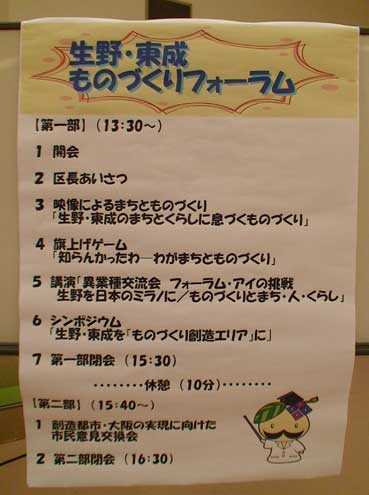 生野・東成
ものづくりフォーラム
【第一部】(13:30〜)
1 開会
2 区長あいさつ
3 映像によるまちとものづくり
「生野・東成のまちとくらしに息づくものづくり」
4 旗上げゲーム
「知らんかったわ―わがまちとものづくり」
5 講演「異業種交流会 フォーラム・アイの挑戦
生野を日本のミラノに／ものづくりとまち・人・くらし」
6 シンポジウム
「生野・東成を「ものづくり創造エリア」に」
7 第一部閉会 (15:30)
‥‥‥‥休憩 (10分)‥‥‥‥
【第二部】(15:40〜)
1 創造都市・大阪の実現に向けた
市民意見交換会
2 第二部閉会 (16:30)